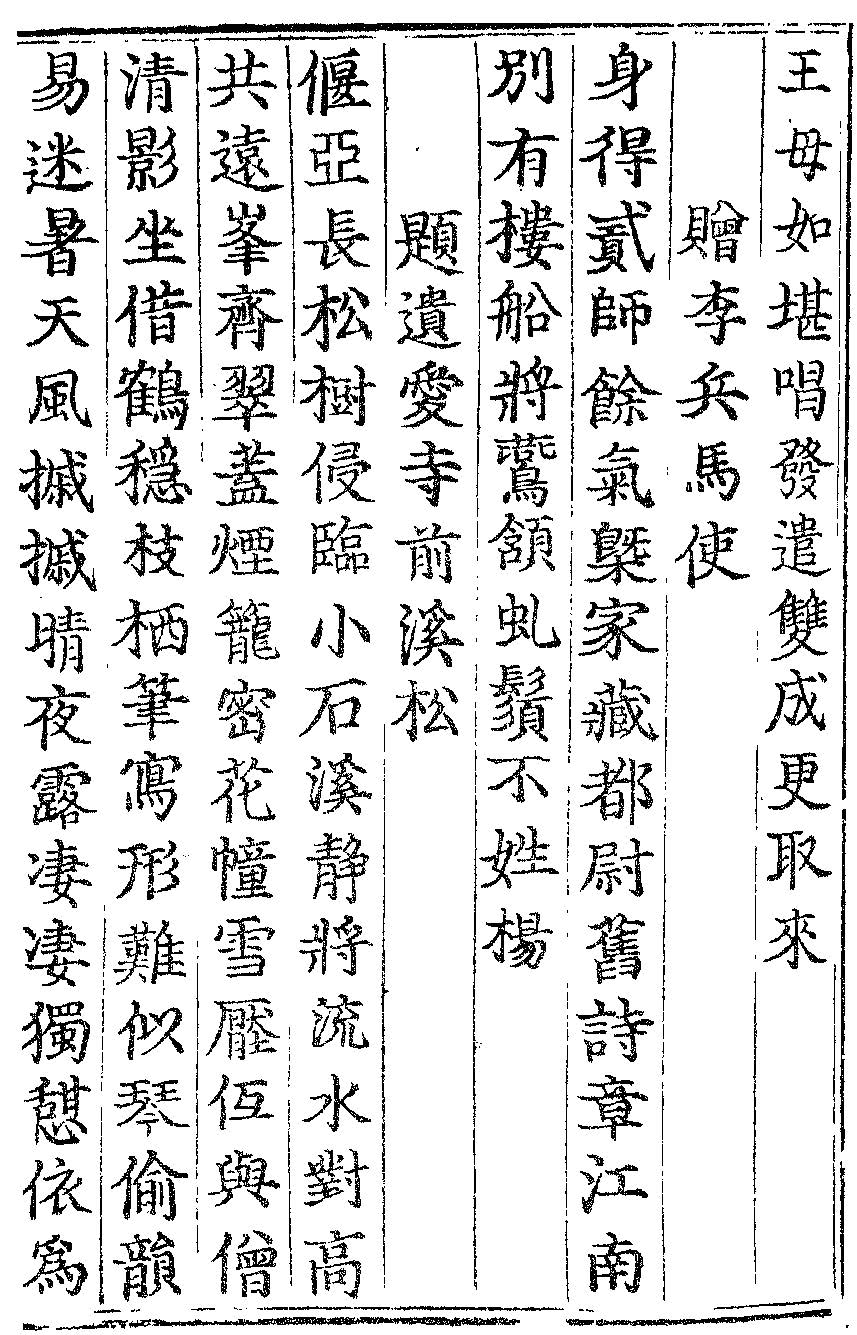 王母如堪唱發遣雙成更取來
贈李兵馬使
身得貳師餘氣槩家藏都尉舊詩章江南
別有樓船將鷰頷虬鬚不姓楊
題遺愛寺前溪松
偃亞長松樹侵臨小石溪静將流水對高
共遠峯齊翠蓋煙籠密花幢雪壓低與僧
清影坐借鶴穩枝栖筆寫形難似琴偷韻
易迷暑天風摵摵晴夜露凄凄獨憩依爲